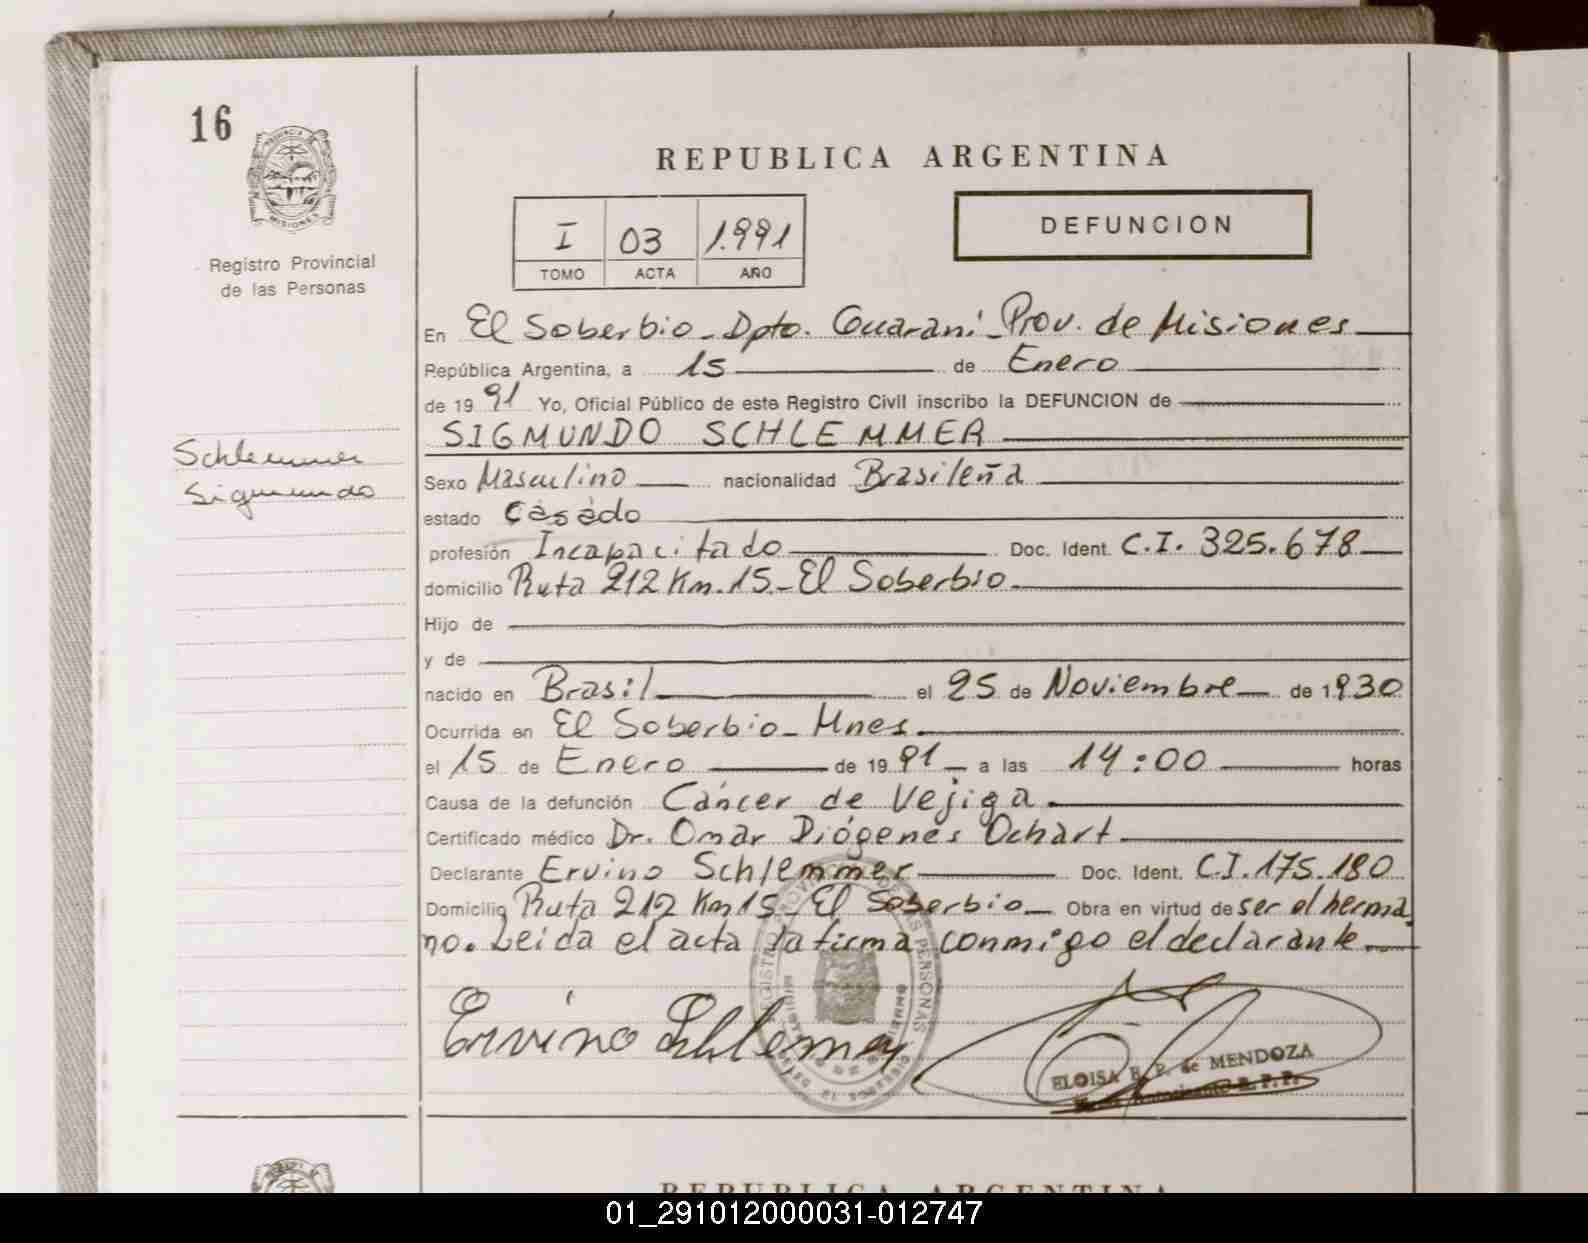 16
PROVINCIA DE
MISIONES
Registro Provincial
de las Personas
Schlemmer
Sigmundo
REPUBLICA ARGENTINA
I 03 1.991
TOMO ACTA AÑO
DEFUNCION
En El Soberbio - Dpto. Guaraní - Prov. de Misiones
República Argentina, a 15 de Enero
de 19 91 Yo, Oficial Público de este Registro Civil inscribo la DEFUNCION de
SIGMUNDO SCHLEMMER
Sexo Masculino nacionalidad Brasileña
estado Casado
profesión Incapacitado Doc. Ident. C.I. 325.678
domicilio Ruta 212 Km. 15.- El Soberbio
Hijo de
y de
nacido en Brasil el 25 de Noviembre de 1930
Ocurrida en El Soberbio - Mnes.
el 15 de Enero de 19 91 a las 14:00 horas
Causa de la defunción Cáncer de Vejiga.
Certificado médico Dr. Omar Diógenes Ochart
Declarante Ervino Schlemmer Doc. Ident. C.I. 175.180
Domicilio Ruta 212 Km 15 - El Soberbio Obra en virtud de ser el herma
no. Leida el acta la firma conmigo el declarante
Ervino Schlemer
ELOISA R. P. de MENDOZA
REPUBLICA ARGENTINA
01_291012000031-012747